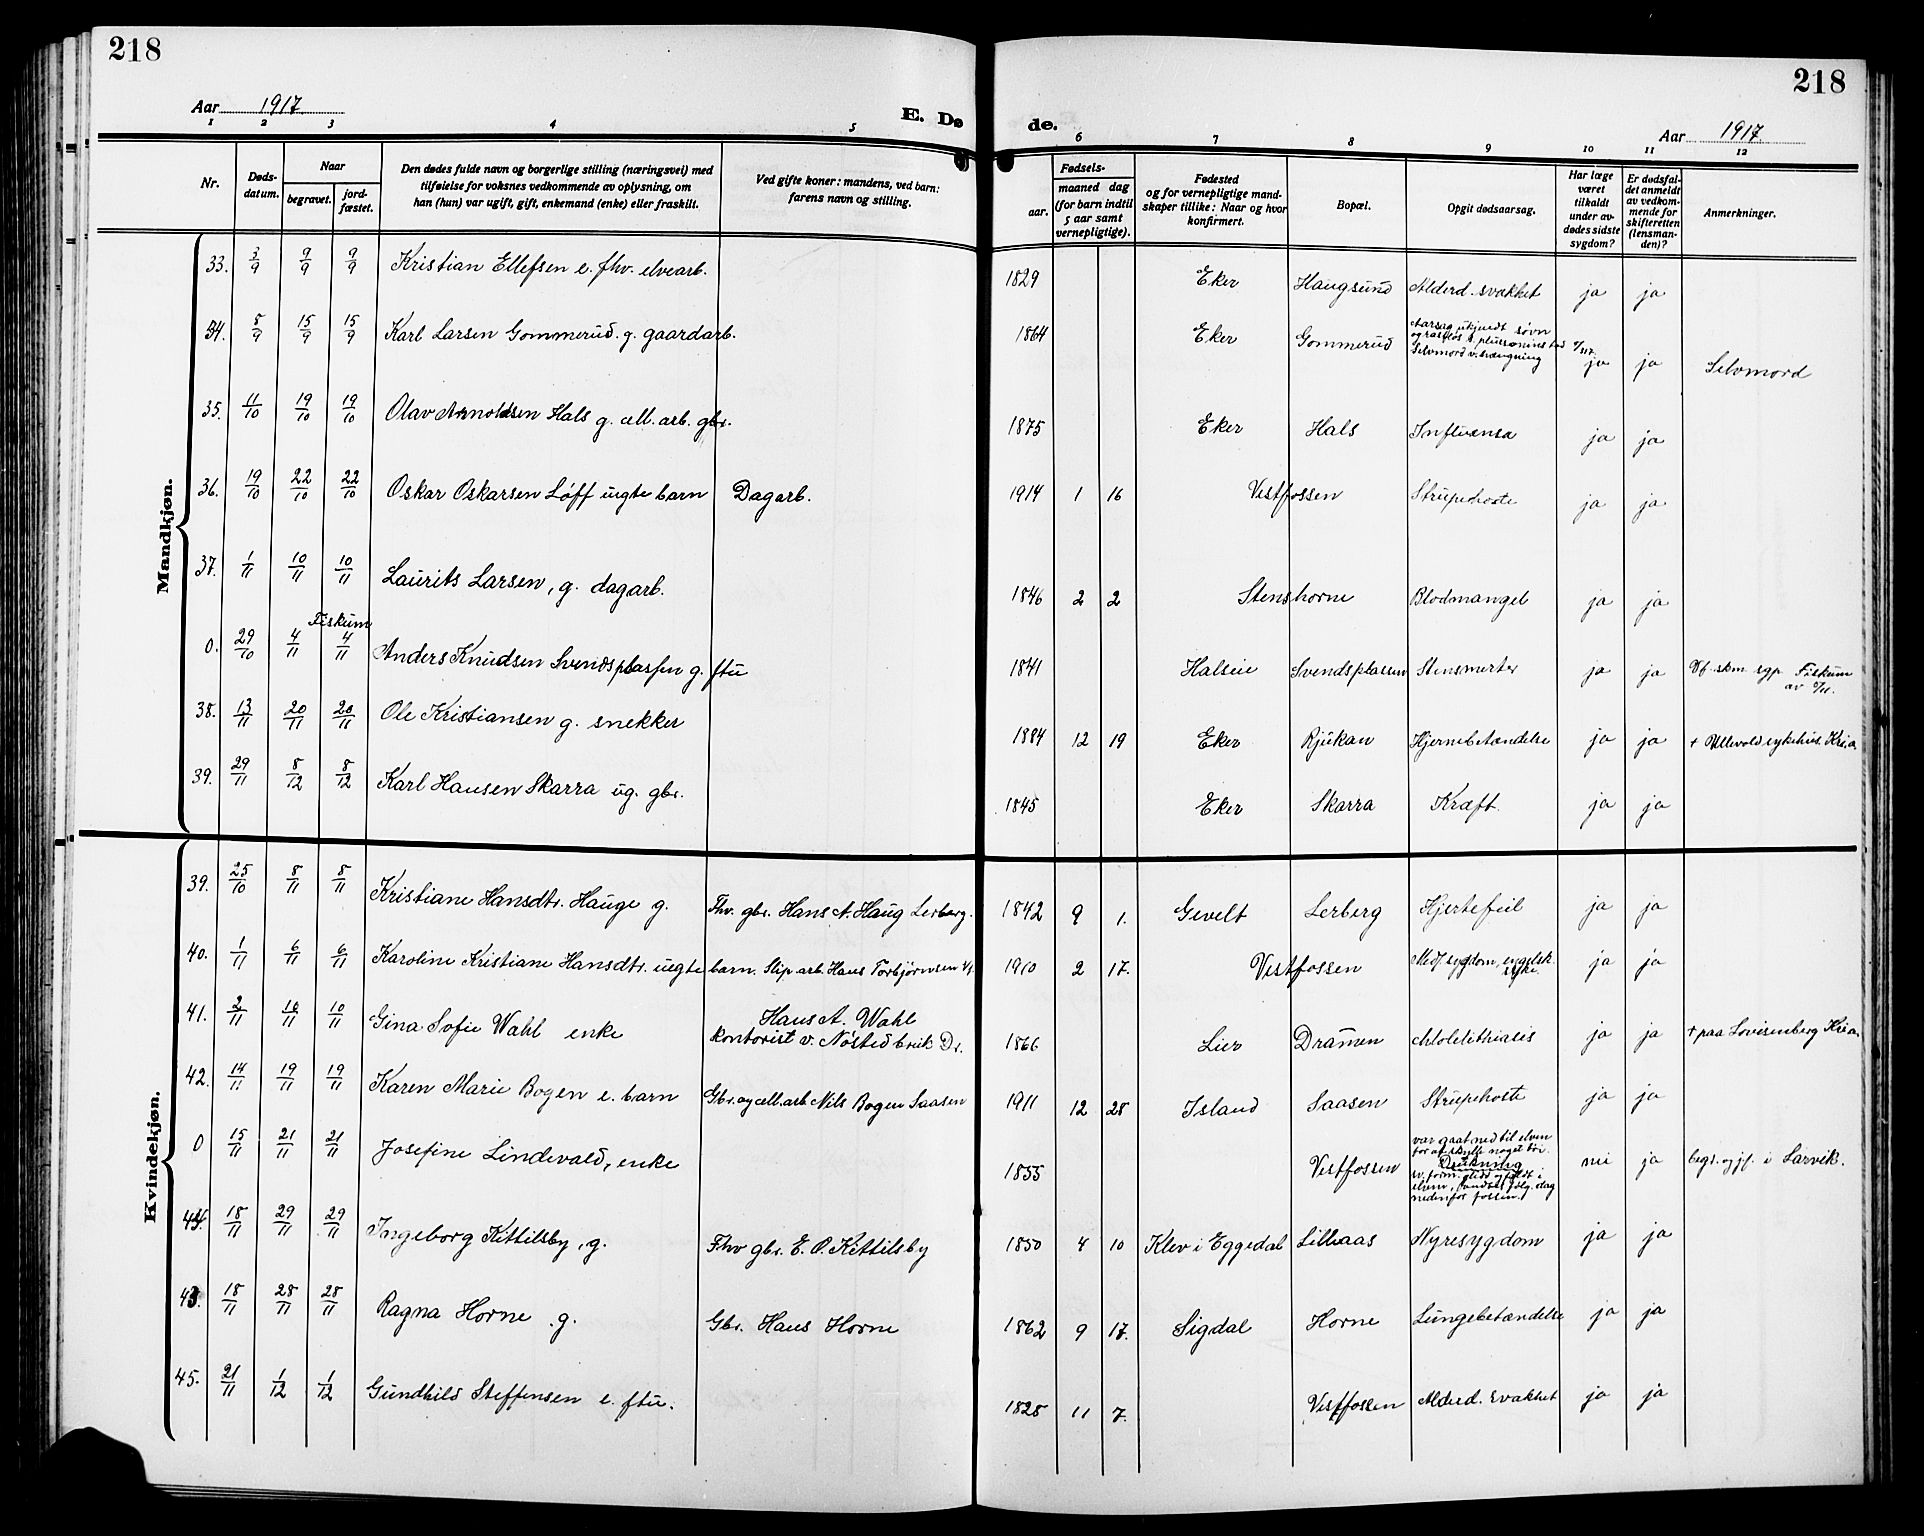 218
218
Aar 1917.
E. Dø
de.
Aar 1917.
1 2 3 4 5
6 7 8 9 10 11 12
Nr.
Døds-
datum.
Naar
begravet.
jord-
fæstet.
Den dødes fulde navn og borgerlige stilling (næringsvei) med
tilføielse for voksnes vedkommende av oplysning, om
han (hun) var ugift, gift, enkemand (enke) eller fraskilt.
Ved gifte koner: mandens, ved barn:
farens navn og stilling.
Fødsels-
aar.
maaned dag
(for barn indtil
5 aar samt
vernepligtige).
Fødested
og for vernepligtige mand-
skaper tillike: Naar og hvor
konfirmert.
Bopæl.
Opgit dødsaarsag.
Har læge
været
tilkaldt
under av-
dødes sidste
sygdom?
Er dødsfal-
det anmeldt
av vedkom-
mende for
skifteretten
(lensman-
den)?
Anmerkninger.
Mandkjøn.
33. 3/9 9/9 9/9 Kristian Ellefsen e. fhv. elvearb. 1829 Eker Haugsund Alderd. svakhet ja ja
34. 8/9 15/9 15/9 Karl Larsen Gommerud g. gaardarb. 1864 Eker Gommerud Aarsag ukjendt søvn
Selvmord v. hængning ja ja Selvmord
35. 11/10 19/10 19/10 Olav Arnoldsen Hals g. cell. arb. gbr. 1875 Eker Hals Influensa ja ja
36. 19/10 22/10 22/10 Oskar Oskarsen Løff uegte barn Dagarb. 1914 1 16 Vestfossen Strupehoste ja ja
37. 1/11 10/11 10/11 Laurits Larsen, g. dagarb. 1846 2 2 Stenshorne Blodmangel ja ja
0. 29/10 4/11 Fiskum 4/11 Anders Knudsen Svendsplassen g. ftu 1841 Halseie Svendsplassen Stensmerter ja ja Vf. skm. sgp. Fiskum
38. 13/11 20/11 20/11 Ole Kristiansen g. snekker 1884 12 19 Eker Rjukan Hjernebetændelse ja ja + Ullevold sykehus. Kr.a.
39. 29/11 8/12 8/12 Karl Hansen Skarra ug. gbr. 1845 Eker Skarra Kræft. ja ja
Kvindekjøn.
39. 25/10 8/11 8/11 Kristiane Hansdtr. Hauge g. Fhv. gbr. Hans A. Haug Lerberg. 1842 9 1. Gevelt Lerberg Hjertefeil ja ja
40. 1/11 6/11 6/11 Karoline Kristiane Hansdtr. uegte barn. Slip. arb. Hans Torbjørnsen Vf. 1910 2 17. Vestfossen Medf. sygdom, engelsk
syke. ja ja
41. 2/11 10/11 10/11 Gina Sofie Wahl enke Hans A. Wahl
kontorist v. Nøsted bruk Dr. 1866 Lier Dramen Cholelithiasis ja ja + paa Lovisenberg Kr.a.
42. 14/11 19/11 19/11 Karen Marie Bogen e. barn Gbr. og cell. arb. Nils Bogen Saasen 1911 12 28 Island Saasen Strupehoste ja ja
0 15/11 21/11 21/11 Josefine Lindevald, enke 1855 Vestfossen var gaat ned til elven
for at skylle noget tøi.
Drukning
nedenfor fossen. nei ja begr. og jf. i Larvik.
44. 18/11 29/11 29/11 Ingeborg Kittilsby, g. Fhv gbr. E. O. Kittilsby 1850 4 10 Klev i Eggedal Lilliaas Nyresygdom ja ja
43. 18/11 28/11 28/11 Ragna Horne g. Gbr. Hans Horne 1862 9 17. Sigdal Horne Lungebetændelse ja ja
45. 21/11 1/12 1/12 Gundhild Steffensen e. ftu. 1828 11 7. Vestfossen Alderd. svakhet ja ja